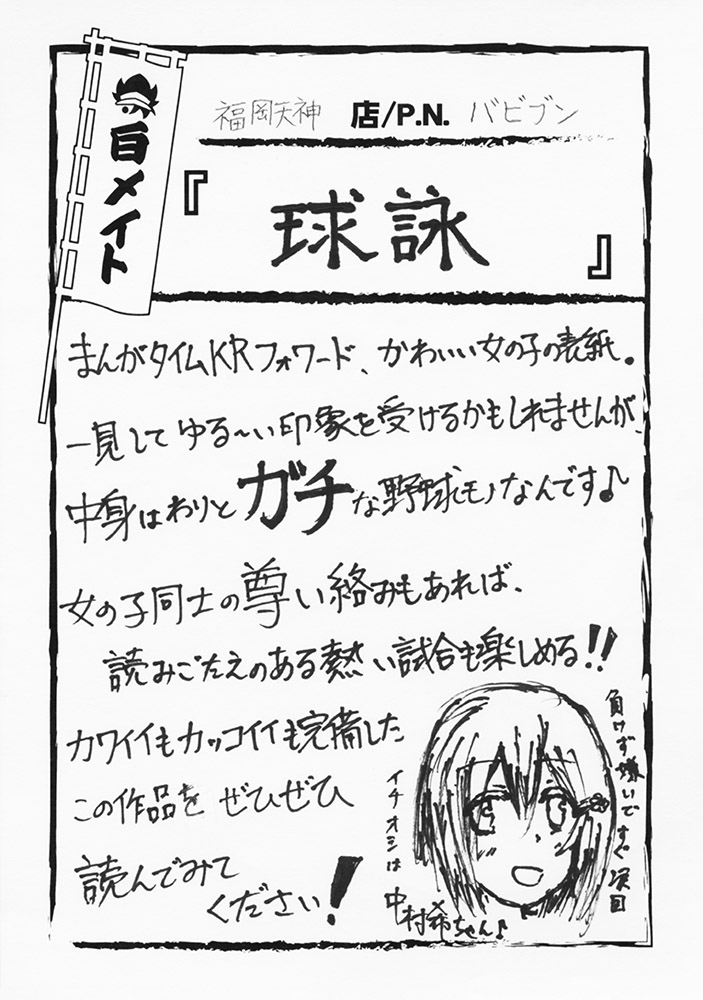 百メイト
福岡天神 店/P.N. バビブン
『球詠』
まんがタイムKRフォワード、かわいい女の子の表紙。
一見してゆる～い印象を受けるかもしれませんが、
中身はわりとガチな野球モノなんです♪
女の子同士の尊い絡みもあれば、
読みごたえのある熱い試合も楽しめる!!
カワイイもカッコイイも完備した
この作品をぜひぜひ
読んでみて
ください!
イチオシは
中村希ちゃん♪
負けず嫌いですぐ涙目